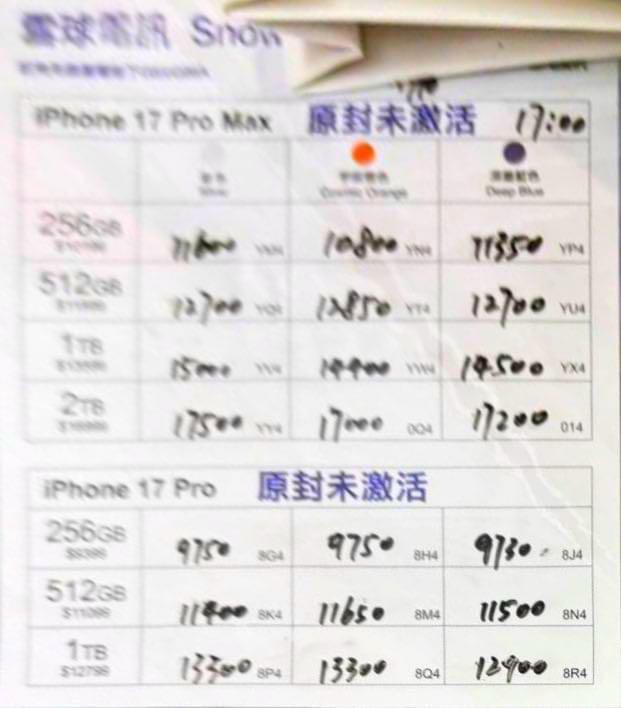 雪球電訊 Snow
iPhone 17 Pro Max 原封未激活 17:00
銀色 宇宙橙色 深藍色
Silver Cosmic Orange Deep Blue
256GB 11600 10800 YN4 11350 YP4
512GB 12700 12850 YT4 12700 YU4
1TB 15000 YV4 14400 YW4 14500 YX4
2TB 17500 YY4 17000 0Q4 17200 014
iPhone 17 Pro 原封未激活
256GB 9750 8G4 9750 8H4 9730 8J4
512GB 11400 8K4 11650 8M4 11500 8N4
1TB 13300 8P4 13300 8Q4 12900 8R4
$12799